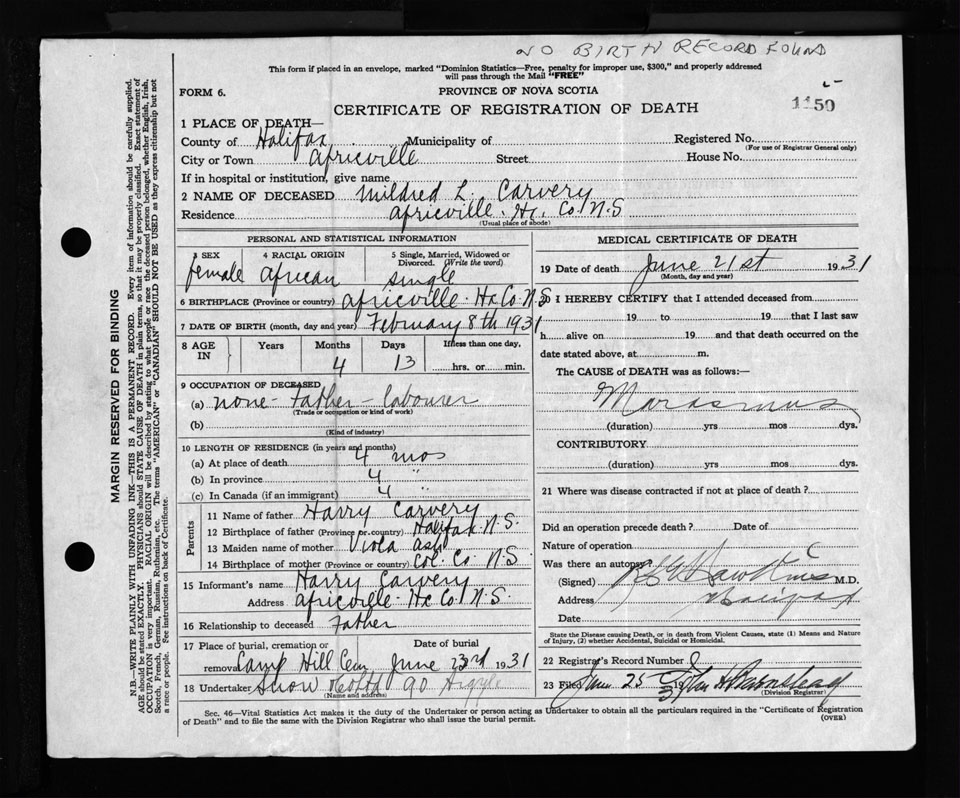 NO BIRTH RECORD FOUND
This form if placed in an envelope, marked "Dominion Statistics—Free, penalty for improper use, $300," and properly addressed
will pass through the Mail "FREE"
FORM 6.
PROVINCE OF NOVA SCOTIA
CERTIFICATE OF REGISTRATION OF DEATH
1159
1 PLACE OF DEATH—
County of Halifax Municipality of Registered No.
(For use of Registrar General only)
City or Town Africville Street House No.
If in hospital or institution, give name
2 NAME OF DECEASED Mildred L. Carvery
Residence Africville. Hx. Co. N.S
(Usual place of abode)
PERSONAL AND STATISTICAL INFORMATION
3 SEX 4 RACIAL ORIGIN 5 Single, Married, Widowed or
Divorced. (Write the word)
female African single
6 BIRTHPLACE (Province or country) Africville. Hx Co. N.S
7 DATE OF BIRTH (month, day and year) February 8th 1931
8 AGE IN Years Months Days If less than one day,
4 13 hrs. or min.
9 OCCUPATION OF DECEASED
(a) none - Father - labourer
(Trade or occupation or kind of work)
(b)
(Kind of industry)
10 LENGTH OF RESIDENCE (in years and months)
(a) At place of death 4 mos
(b) In province 4 "
(c) In Canada (if an immigrant) 4 "
Parents
11 Name of father Harry Carvery
12 Birthplace of father (Province or country) Halifax N.S.
13 Maiden name of mother Viola Ash
14 Birthplace of mother (Province or country) Col. Co. N.S.
15 Informant's name Harry Carvery
Address Africville. Hx Co. N.S.
16 Relationship to deceased Father
17 Place of burial, cremation or Date of burial
removal Camp Hill Cem June 23rd 1931
18 Undertaker Snow 90 Argyle
(Name and address)
MEDICAL CERTIFICATE OF DEATH
19 Date of death June 21st 1931
(Month, day and year)
20 I HEREBY CERTIFY that I attended deceased from
19 to 19 that I last saw
h alive on 19 and that death occurred on the
date stated above, at m.
The CAUSE of DEATH was as follows:—
Marasmus
(duration) yrs mos dys.
CONTRIBUTORY
(duration) yrs mos dys.
21 Where was disease contracted if not at place of death?
Did an operation precede death? Date of
Nature of operation
Was there an autopsy
(Signed) Hawkins M.D.
Address Halifax
Date
State the Disease causing Death, or in death from Violent Causes, state (1) Means and Nature
of Injury, (2) whether Accidental, Suicidal or Homicidal.
22 Registrar's Record Number
23 Filed June 25 1931 John H
(Division Registrar)
Sec. 46—Vital Statistics Act makes it the duty of the Undertaker or person acting as Undertaker to obtain all the particulars required in the "Certificate of Registration
of Death" and to file the same with the Division Registrar who shall issue the burial permit.
(OVER)
MARGIN RESERVED FOR BINDING
N.B.—WRITE PLAINLY WITH UNFADING INK—THIS IS A PERMANENT RECORD. Every item of information should be carefully supplied.
AGE should be stated EXACTLY. PHYSICIANS should STATE CAUSE OF DEATH in plain terms, so that it may be properly classified. Exact statement of
OCCUPATION is very important. RACIAL ORIGIN will be described by stating to what people or race the deceased person belonged, whether English, Irish,
Scotch, French, German, Russian, Ruthenian, etc. The terms "AMERICAN" or "CANADIAN" SHOULD NOT BE USED as they express citizenship but not
a race or people. See instructions on back of Certificate.